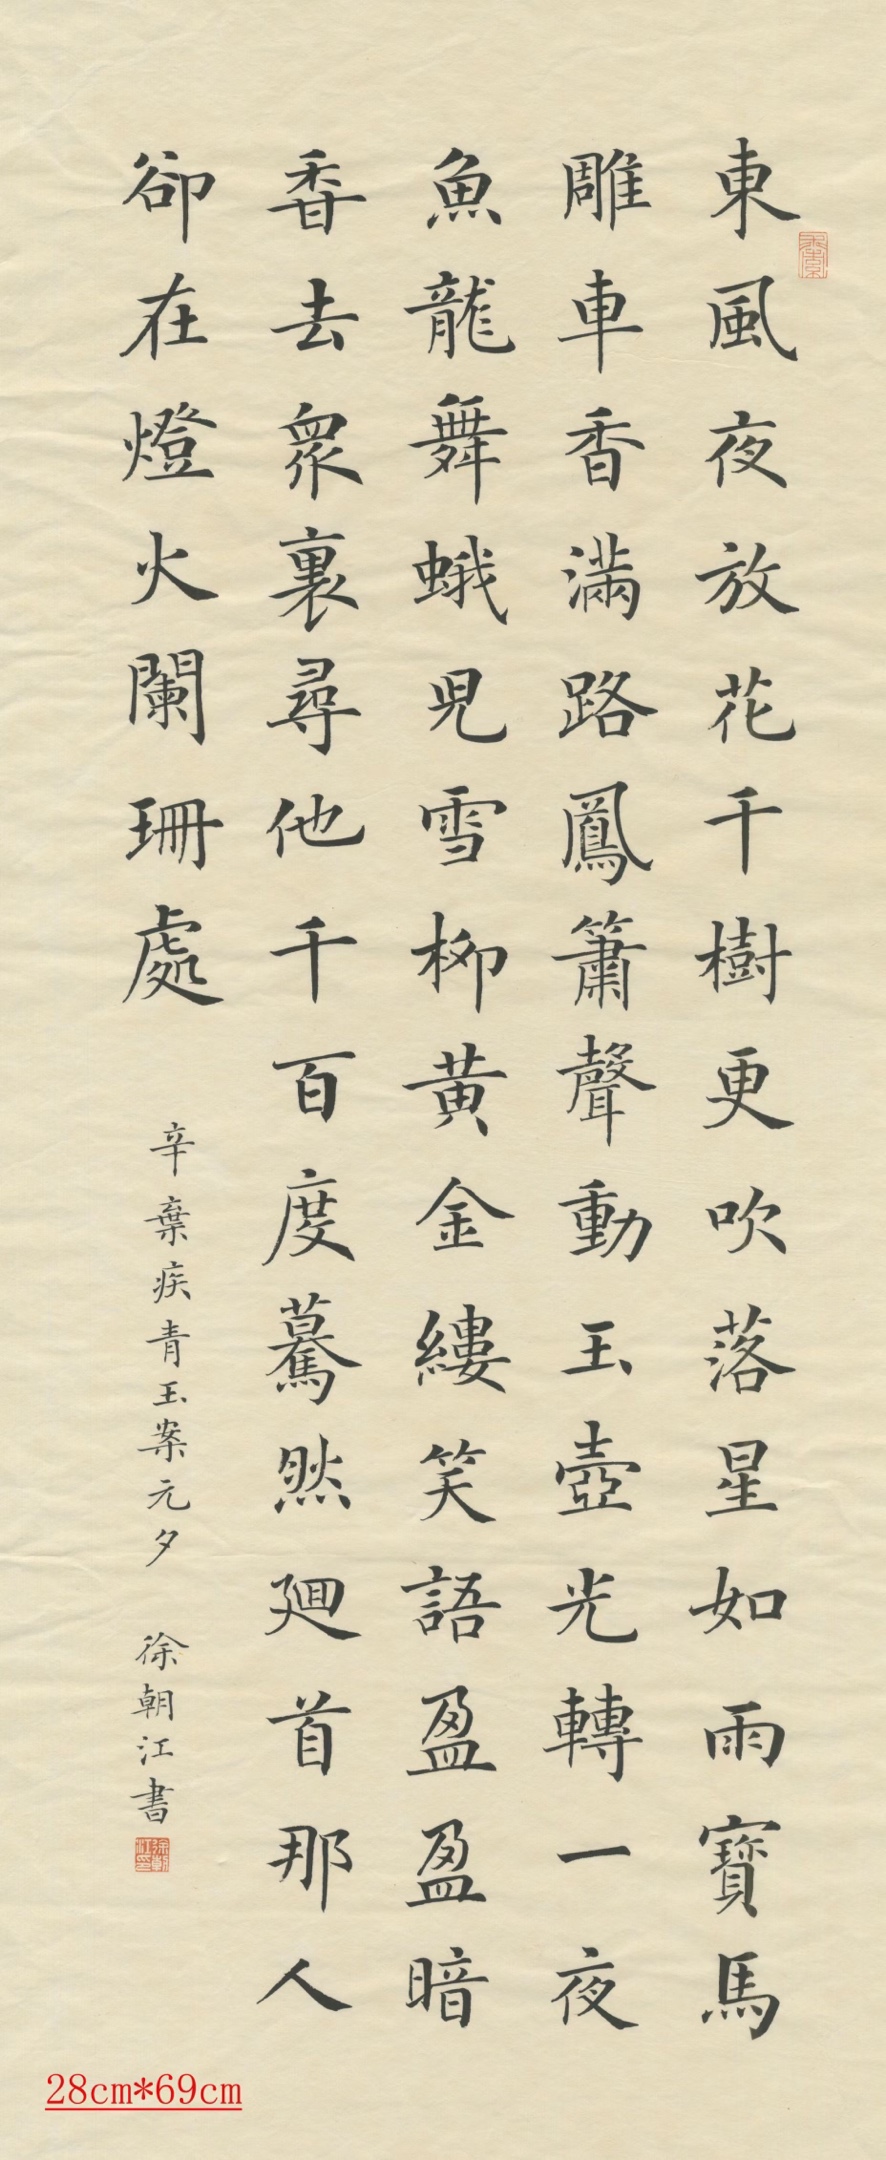 東風夜放花千樹更吹落星如雨寶馬
雕車香滿路鳳簫聲動玉壺光轉一夜
魚龍舞蛾兒雪柳黃金縷笑語盈盈暗
香去衆裏尋他千百度驀然廻首那人
卻在燈火闌珊處
辛棄疾青玉案元夕
徐朝江書
徐朝江印
28cm*69cm